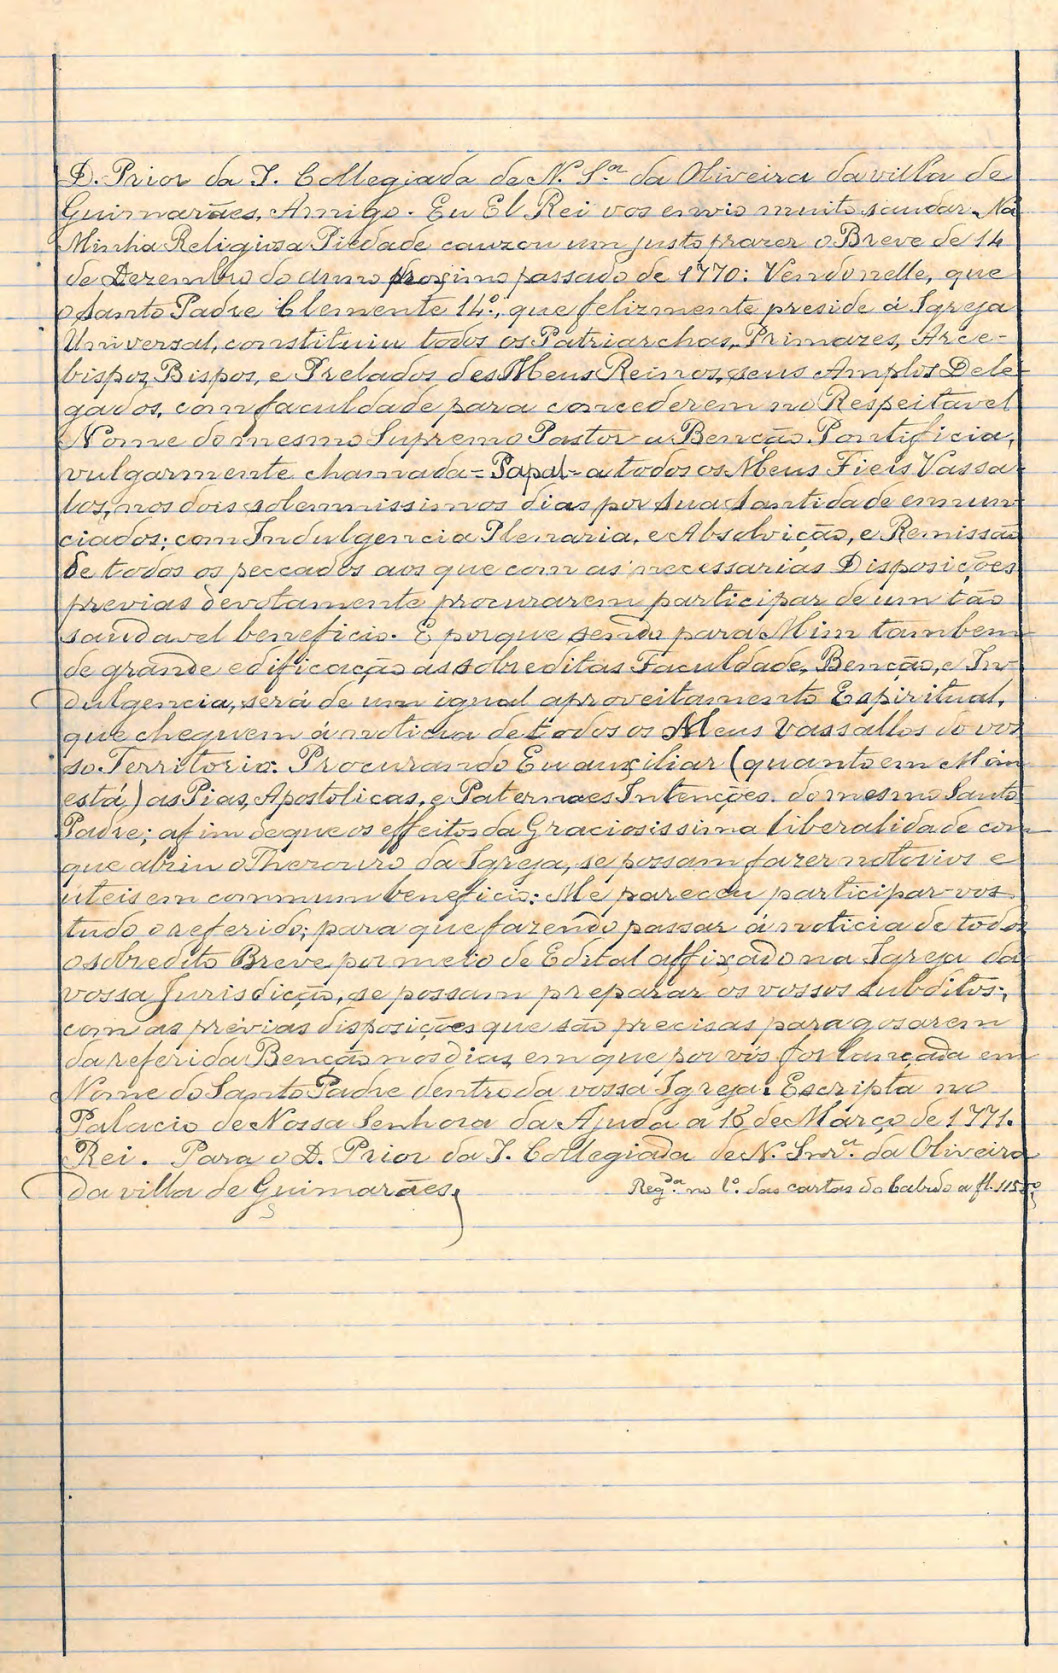 D. Prior da I. Collegiada de N. S.ra da Oliveira da villa de
Guimarães, Amigo. Eu El Rei vos envio muito saudar. Na
Minha Religiosa Piedade cauzou um justo prazer o Breve de 14
de Dezembro do anno proximo passado de 1770: Vendo nelle, que
o Santo Padre Clemente 14º, que felizmente preside á Igreja
Universal, constituiu todos os Patriarchas, Primazes, Arce-
bispos, Bispos, e Prelados dos Meus Reinos, seus Amplos Dele-
gados, com faculdade para concederem no Respeitavel
Nome do mesmo Supremo Pastor a Benção Pontificia,
vulgarmente chamada = Papal = a todos os Meus Fieis Vassa-
los, nos dois solemnissimos dias por Sua Santidade ennun-
ciados; com Indulgencia Plenaria, e Absolvição, e Remissão
de todos os peccados aos que com as necessarias Disposições
previas devotamente procurarem participar de um tão
saudavel beneficio. E porque sendo para Mim tambem
de grande edificação as sobreditas Faculdade, Benção, e In-
dulgencia, será de um igual aproveitamento Espiritual,
que cheguem á noticia de todos os Meus Vassallos do vos-
so Territorio: Procurando Eu auxiliar (quanto em Mim
está) as Pias, Apostolicas, e Paternaes Intenções do mesmo Santo
Padre; afim de que os effeitos da Graciosissima liberalidade com
que abriu o Thezouro da Igreja, se possam fazer notorios e
uteis em commum beneficio: Me pareceu participar-vos
tudo o referido; para que fazendo passar á noticia de todos
o sobredito Breve por meio de Edital affixado na Igreja da
vossa Jurisdicção, se possam preparar os vossos subditos;
com as prévias disposições que são precisas para gosarem
da referida Benção nos dias, em que por vós for lançada em
Nome do Santo Padre dentro da vossa Igreja. Escripta no
Palacio de Nossa Senhora da Ajuda a 18 de Março de 1771.
Rei. Para o D. Prior da I. Collegiada de N. Snr.a da Oliveira
da villa de Guimarães.
Reg.da no l.o das cartas do Cabido a fl. 115